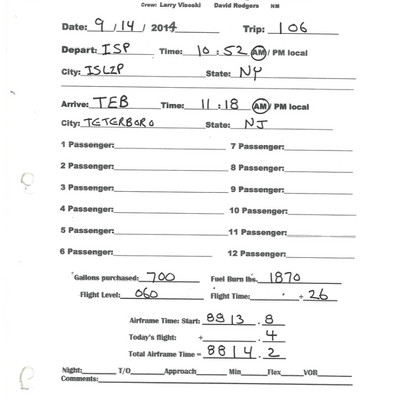 Crew: Larry Visoski David Rodgers NM
Date: 9/14/2014 Trip: 106
Depart: ISP Time: 10:52 AM/ PM local
City: ISLIP State: NY
Arrive: TEB Time: 11:18 AM/ PM local
City: TETERBORO State: NJ
1 Passenger: 7 Passenger:
2 Passenger: 8 Passenger:
3 Passenger: 9 Passenger:
4 Passenger: 10 Passenger:
5 Passenger: 11 Passenger:
6 Passenger: 12 Passenger:
Gallons purchased: 700 Fuel Burn lbs. 1870
Flight Level: 060 Flight Time: + 26
Airframe Time: Start: 8813.8
Today's flight: + .4
Total Airframe Time = 8814.2
Night: T/O Approach Min Flex VOR
Comments: